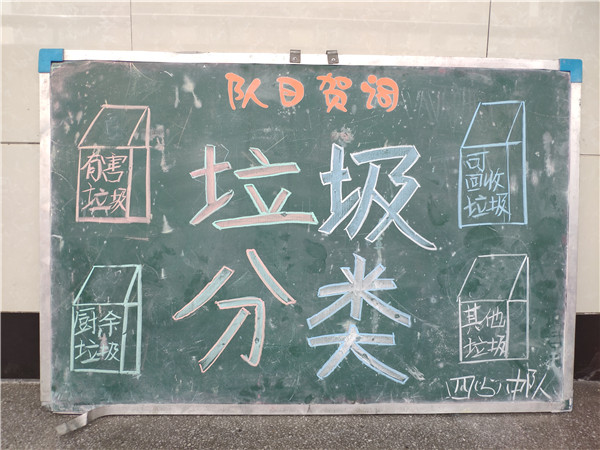 队日贺词
有害
垃圾
垃圾
可
回收
垃圾
分类
厨余
垃圾
其他
垃圾
中队